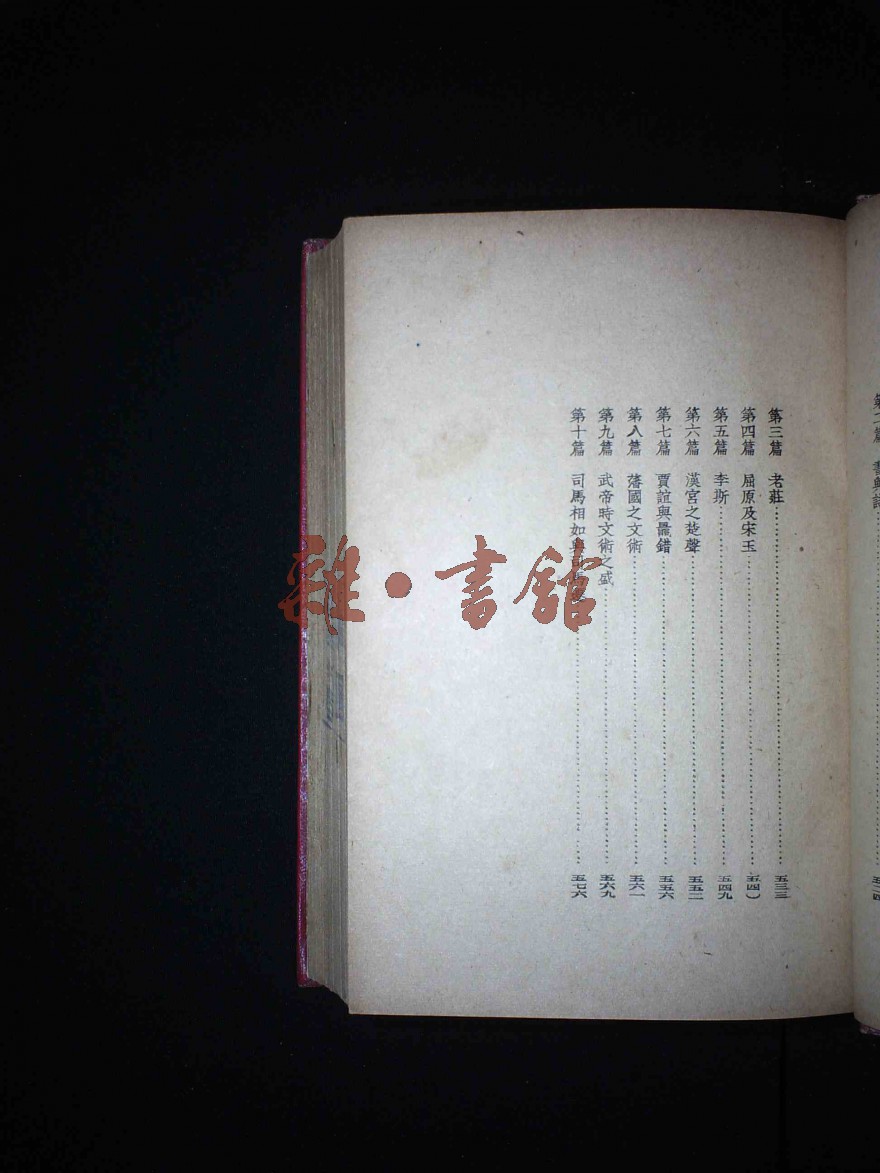 第三篇 老莊……五三三
第四篇 屈原及宋玉……五四〇
第五篇 李斯……五四九
第六篇 漢宮之楚聲……五五二
第七篇 賈誼與鼂錯……五五六
第八篇 藩國之文術……五六一
第九篇 武帝時文術之盛……五六九
第十篇 司馬相如與司馬遷……五七六
雜·書館